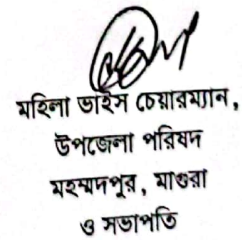 মহিলা ভাইস চেয়ারম্যান,
উপজেলা পরিষদ
মহম্মদপুর, মাগুরা
ও সভাপতি